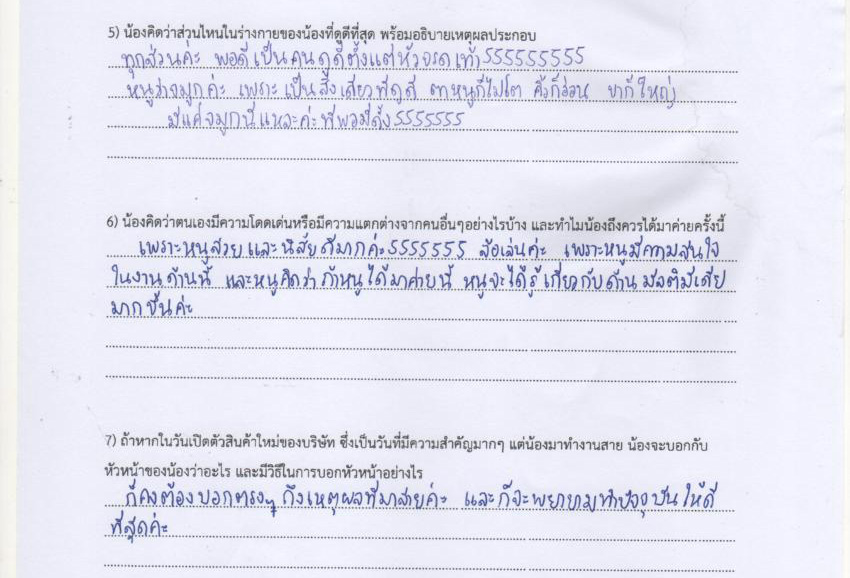 5) น้องคิดว่าส่วนไหนในร่างกายของน้องที่ดูดีที่สุด พร้อมอธิบายเหตุผลประกอบ
ทุกส่วนค่ะ พอดีเป็นคนดูดีตั้งแต่หัวจรดเท้า555555555
หนูว่าจมูกค่ะ เพราะเป็นสิ่งเดียวที่ดูดี ตาหนูก็ไม่โต คิ้วก็อ่อน ขาก็ใหญ่
มีแค่จมูกนี่แหละค่ะที่พอมีดั้ง5555555
6) น้องคิดว่าตนเองมีความโดดเด่นหรือมีความแตกต่างจากคนอื่นๆอย่างไรบ้าง และทำไมน้องถึงควรได้มาค่ายครั้งนี้
เพราะหนูสวยและนิสัยดีมากค่ะ5555555 ล้อเล่นค่ะ เพราะหนูมีความสนใจ
ในงานด้านนี้ และหนูคิดว่า ถ้าหนูได้มาค่ายนี้ หนูจะได้รู้เกี่ยวกับด้านมัลติมีเดีย
มากขึ้นค่ะ
7) ถ้าหากในวันเปิดตัวสินค้าใหม่ของบริษัท ซึ่งเป็นวันที่มีความสำคัญมากๆ แต่น้องมาทำงานสาย น้องจะบอกกับ
หัวหน้าของน้องว่าอะไร และมีวิธีในการบอกหัวหน้าอย่างไร
ก็คงต้องบอกตรงๆ ถึงเหตุผลที่มาสายค่ะ และก็จะพยายามทำปัจจุบันให้ดี
ที่สุดค่ะ